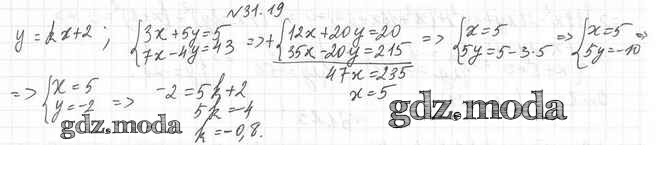 №31.19
y = kx+2 ; { 3x+5y=5 7x-4y=43 => + { 12x+20y=20 35x-20y=215 => { x=5 5y=5-3·5 => { x=5 5y=-10 =>
47x=235
x=5
=> { x=5 y=-2 => -2=5k+2
5k=-4
k=-0,8.
gdz.moda
gdz.moda